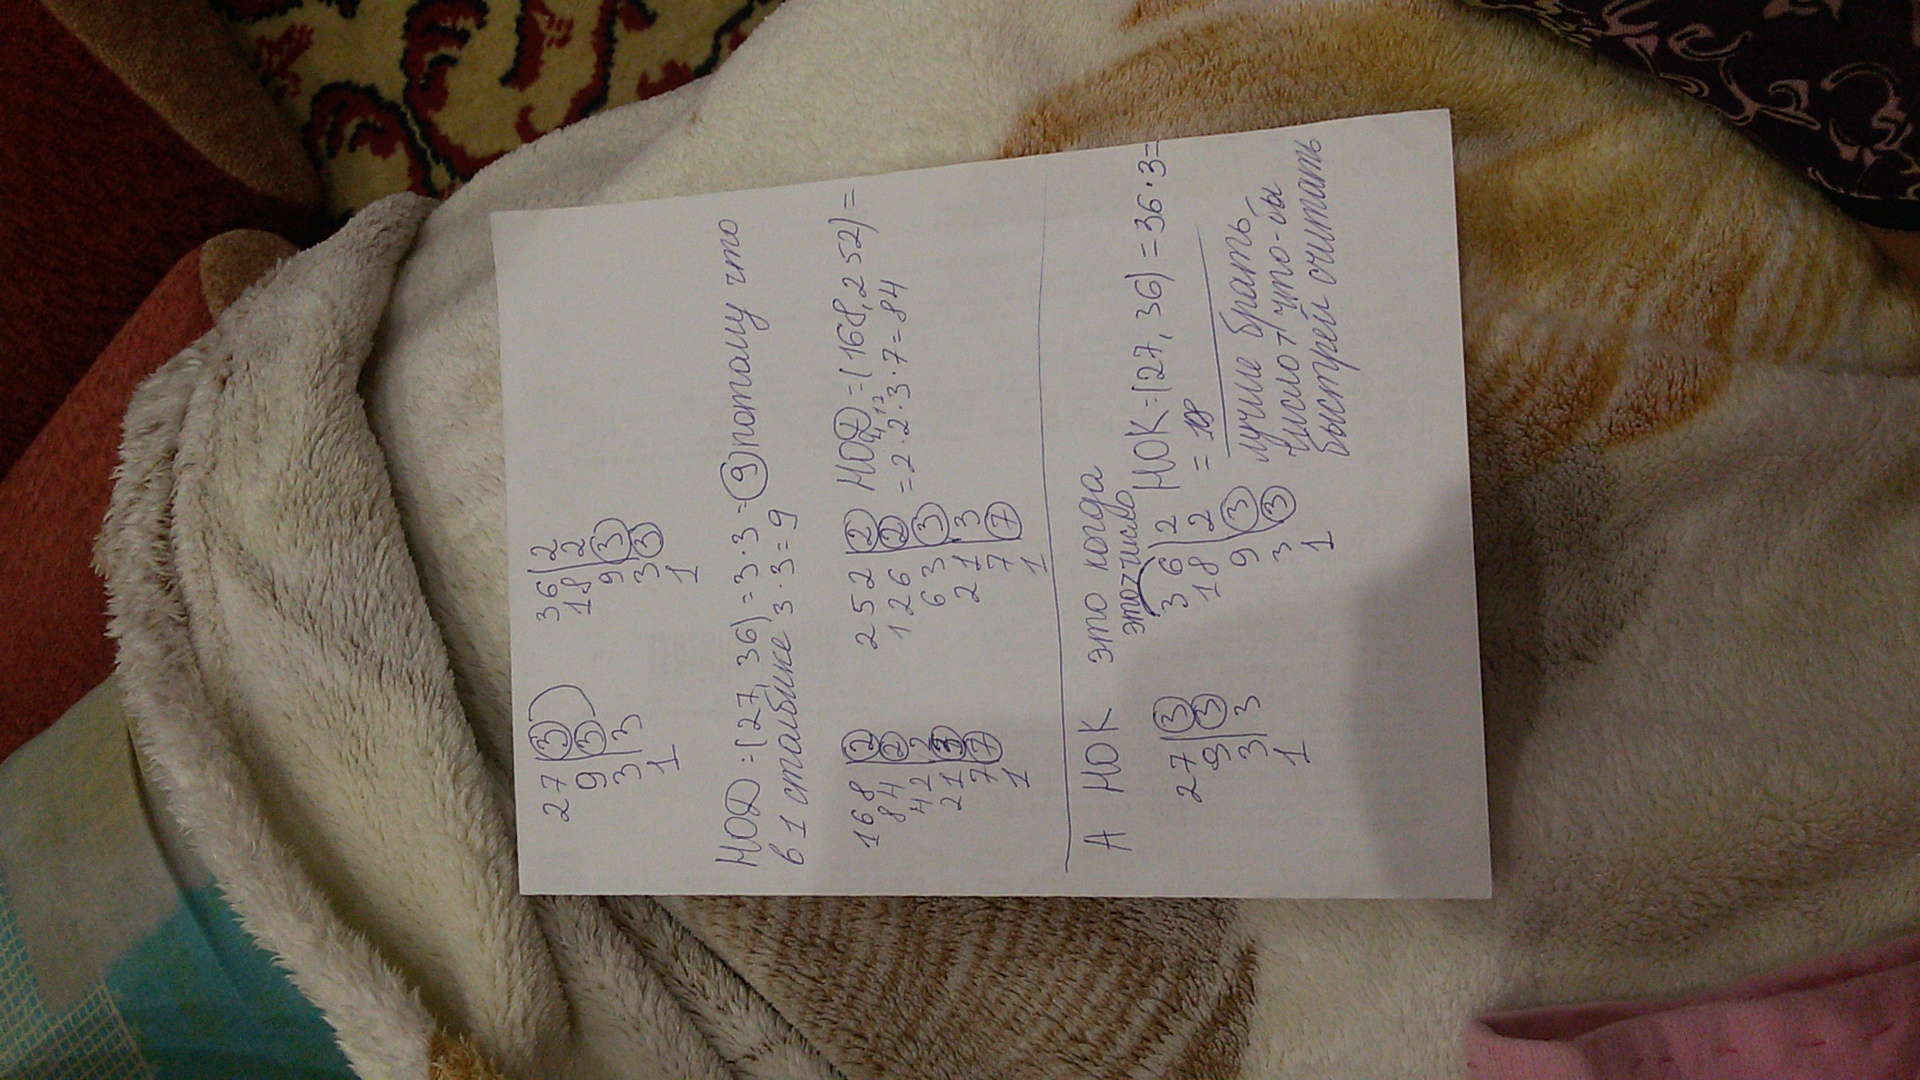 27|3 36|2
9|3 18|2
3|3 9|3
1 3|3
1
НОД=(27,36)=3·3=9) потому что
в 1 сталбике 3·3=9
168|2 252|2 НОД=(168,252)=
84|2 126|2 =2·2·3·7=84
42|2 63|3
21|3 21|3
7|7 7|7
1 1
А НОК это когда
это число
27|3 36|2 НОК=(27,36)=36·3=
9|3 18|2 =
3|3 9|3 лучше брать
1 3|3 число что-бы
1 быстрей считать